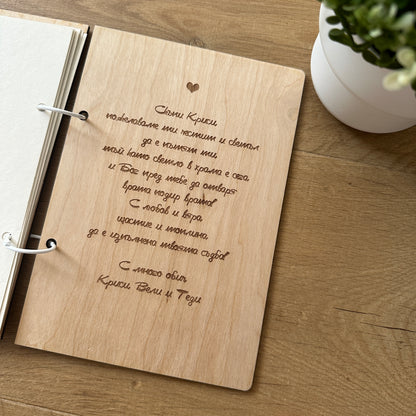 Свети Криси,
пожелаваме ти чист и светъл
да е пътят ти,
тъй като светло в храма е сега
и Бог пред тебе да отваря
врата подир врата!
С любов и вяра,
щастие и топлина,
да е изпълнена твоята съдба!
С много обич,
Криси, Вели и Теди